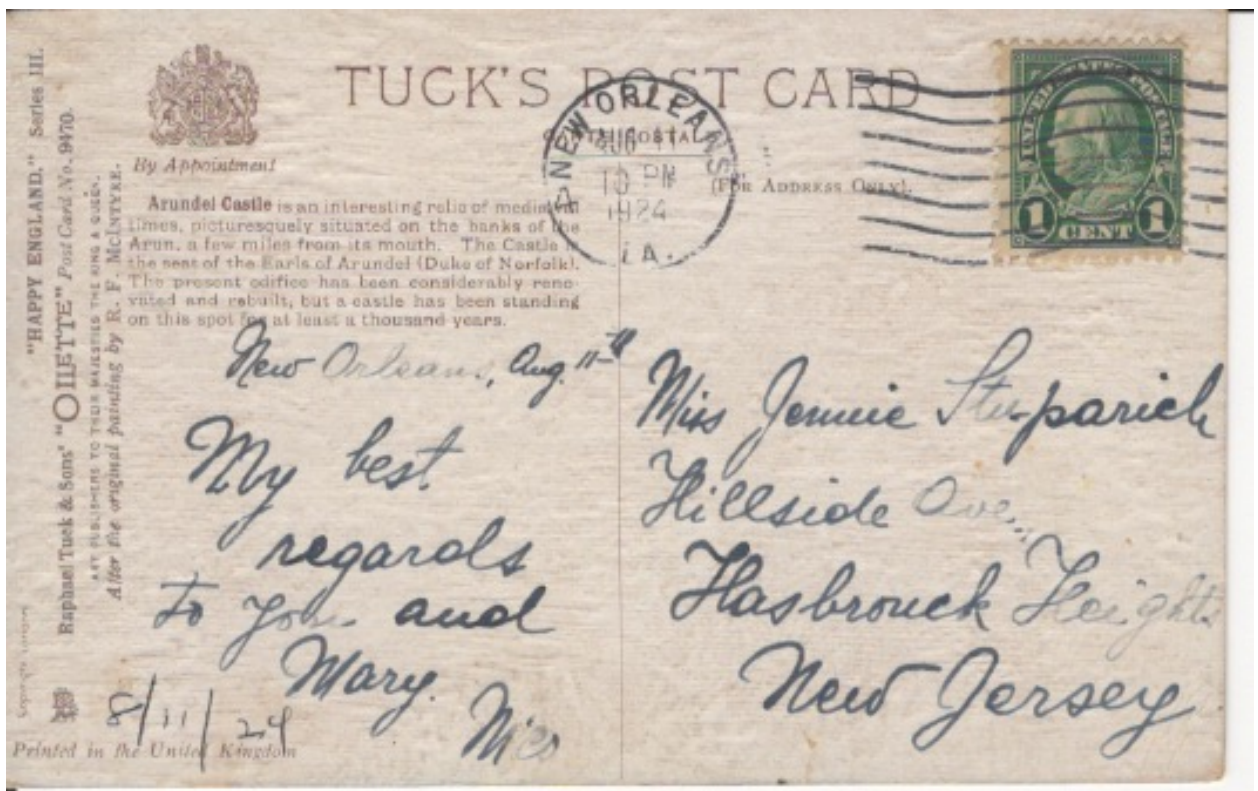 "HAPPY ENGLAND." Series III.
Raphael Tuck & Sons' "OILETTE" Post Card No. 9470.
ART PUBLISHERS TO THEIR MAJESTIES THE KING & QUEEN.
After the original painting by R. F. McINTYRE.
By Appointment
TUCK'S POST CARD
(FOR ADDRESS ONLY).
NEW ORLEANS
AUG 11
10 PM
1924
LA.
UNITED STATES POSTAGE
1 CENT 1
Arundel Castle is an interesting relic of mediæval
times, picturesquely situated on the banks of the
Arun, a few miles from its mouth. The Castle is
the seat of the Earls of Arundel (Duke of Norfolk).
The present edifice has been considerably reno-
vated and rebuilt, but a castle has been standing
on this spot for at least a thousand years.
New Orleans, Aug. 11-th
My best
regards
to you and
Mary.
8/11/24
Printed in the United Kingdom
Miss Jennie Stuparich
Hillside Ave.,
Hasbrouck Heights
New Jersey